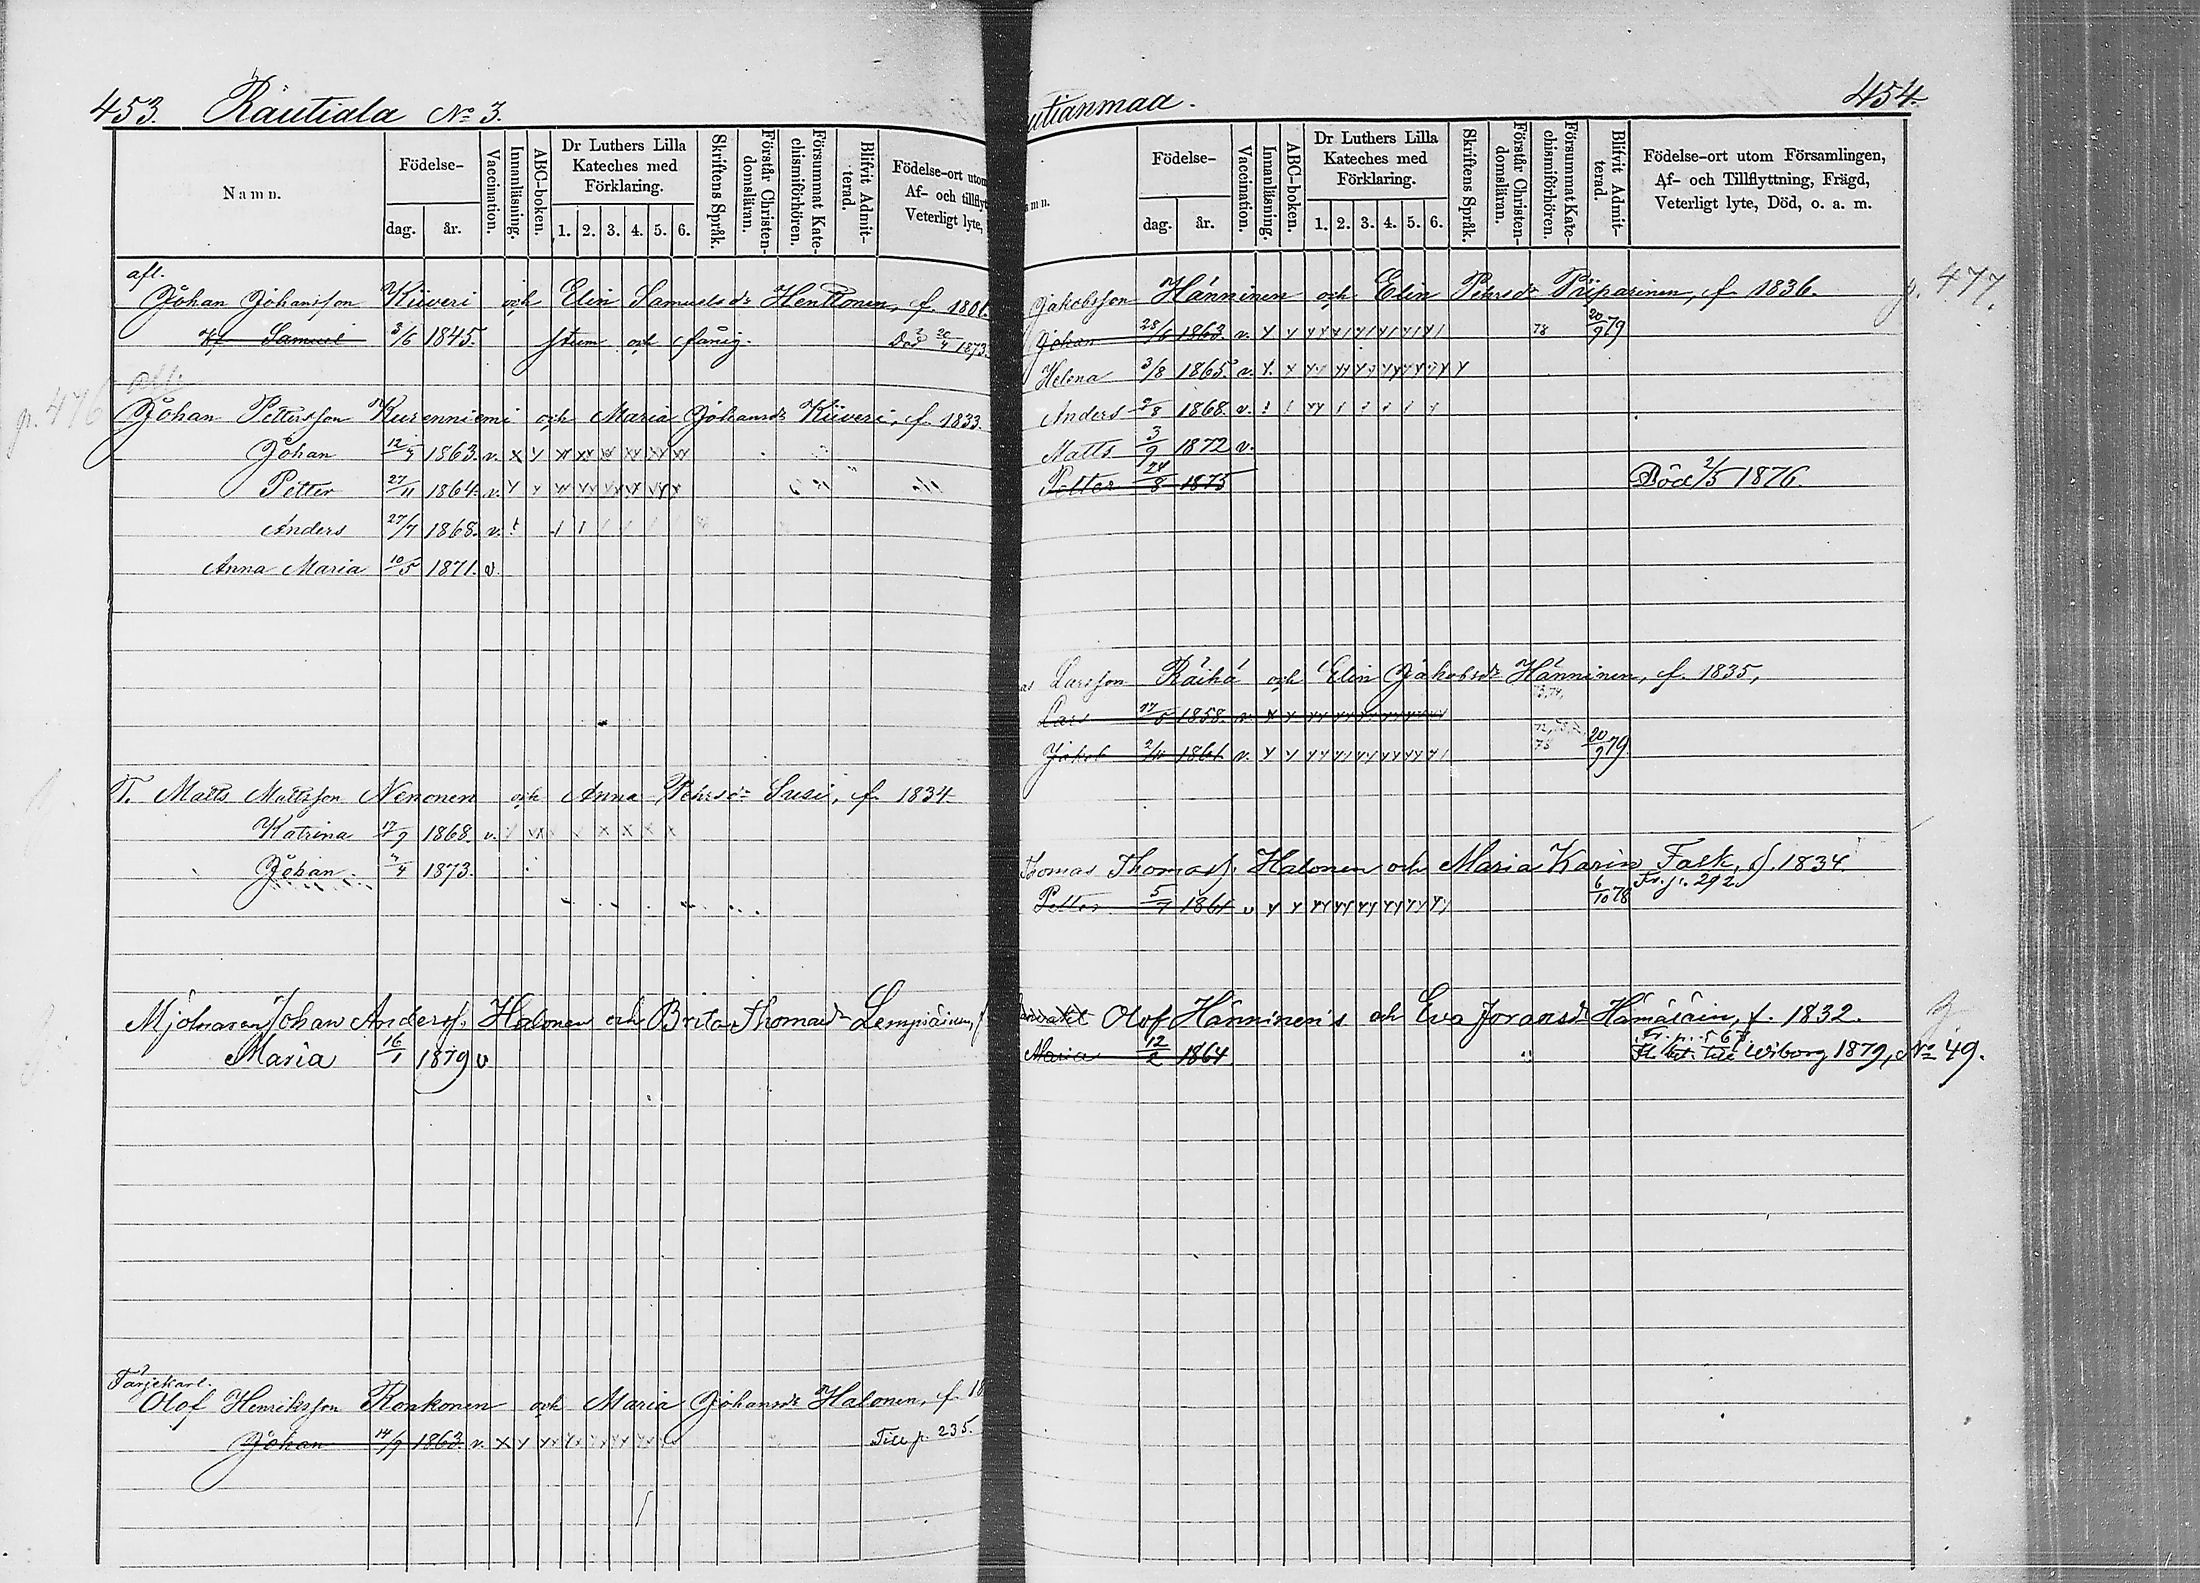 453. Räutiala No 3.
Namn.
Födelse-
dag. år.
Vaccination.
Innanläsning.
ABC-boken.
Dr Luthers Lilla
Kateches med
Förklaring.
1. 2. 3. 4. 5. 6.
Skriftens Språk.
Förstår Christen-
domsläran.
Försummat Kate-
chismiförhören.
Blifvit Admit-
terad.
Födelse-ort utom
Af- och tillflyt
Veterligt lyte,
afl.
Johan Johansson Kiiveri och Elin Samuelsdr Henttonen, f. 1801.
Samuel 3/6 1845. stum och fånig. Död 20/4 1873.
p. 476
Johan Pettersson Kurenniemi och Maria Johansdr Kiiveri, f. 1833.
Johan 12/7 1863. v. x y xx xx xx xx xx xx
Petter 27/11 1864. v.
Anders 27/7 1868. v.
Anna Maria 10/5 1871. v.
T. Matts Mattsson Nenonen och Anna Pehrsdr Susi, f. 1834.
Katrina 17/9 1868. v.
Johan 7/4 1873.
Mjölnaren Johan Anderss. Halonen och Brita Thomasdr Lempiäinen, f
Maria 16/1 1879 v
Färjekarl.
Olof Henriksson Ronkonen och Maria Johansdr Halonen, f. 18
Johan 14/9 1863. v. x y Till p. 235.
utianmaa. 454.
mn.
Födelse-
dag. år.
Vaccination.
Innanläsning.
ABC-boken.
Dr Luthers Lilla
Kateches med
Förklaring.
1. 2. 3. 4. 5. 6.
Skriftens Språk.
Förstår Christen-
domsläran.
Försummat Kate-
chismiförhören.
Blifvit Admit-
terad.
Födelse-ort utom Församlingen,
Af- och Tillflyttning, Frägd,
Veterligt lyte, Död, o. a. m.
Jakobsson Hänninen och Elin Pehrsdr Piiparinen, f. 1836. p. 477.
Johan 28/6 1863. v. 78 20/9 79
Helena 3/8 1865. v.
Anders 2/8 1868. v.
Matts 3/9 1872 v.
Petter 24/8 1875 Död 2/5 1876.
as Larsson Räihä och Elin Jakobsdr Hänninen, f. 1835,
Lars 17/5 1858. v.
Jakob 2/11 1861 v. 78 20/9 79
Thomas Thomass. Halonen och Maria Karin Falk, f. 1834.
Petter 5/7 1861 v 6/10 78 Fr. p. 292.
Olof Hänninen's och Eva Joransdr Hämäläin, f. 1832.
Fr. p. 567.
Maria 12/2 1864 Fl. bet. till Wiborg 1879, No 49.